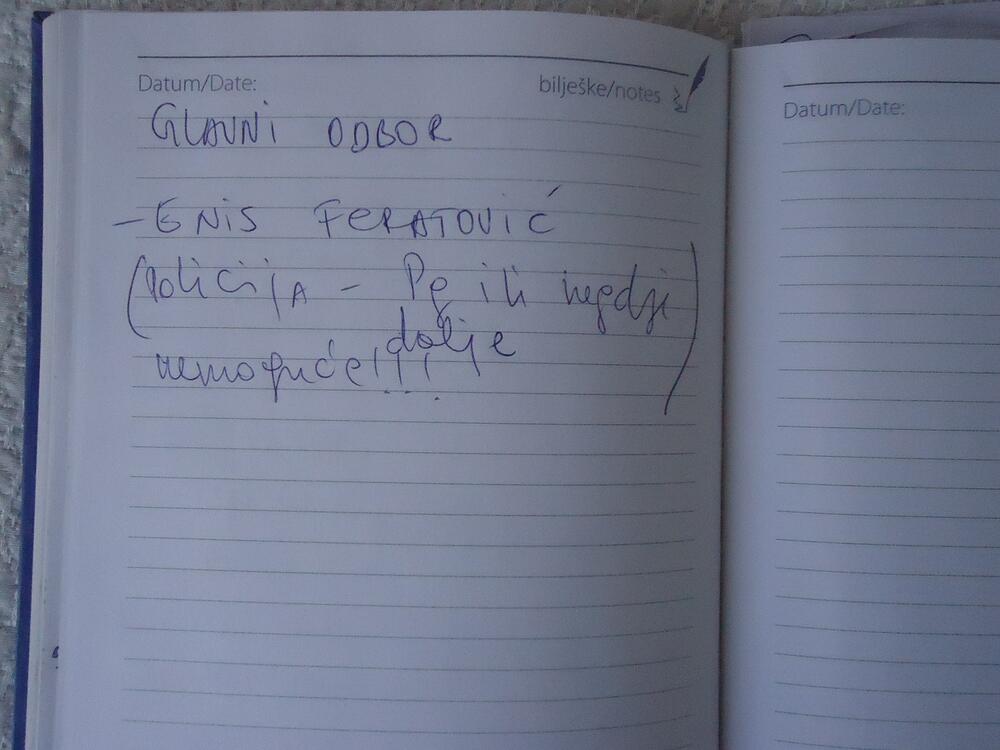 Datum/Date:
bilješke/notes
GLAVNI ODBOR
– ENIS FERATOVIĆ
(policija – Pg ili negdji
dolje
nemoguće!!!)
Datum/Date: